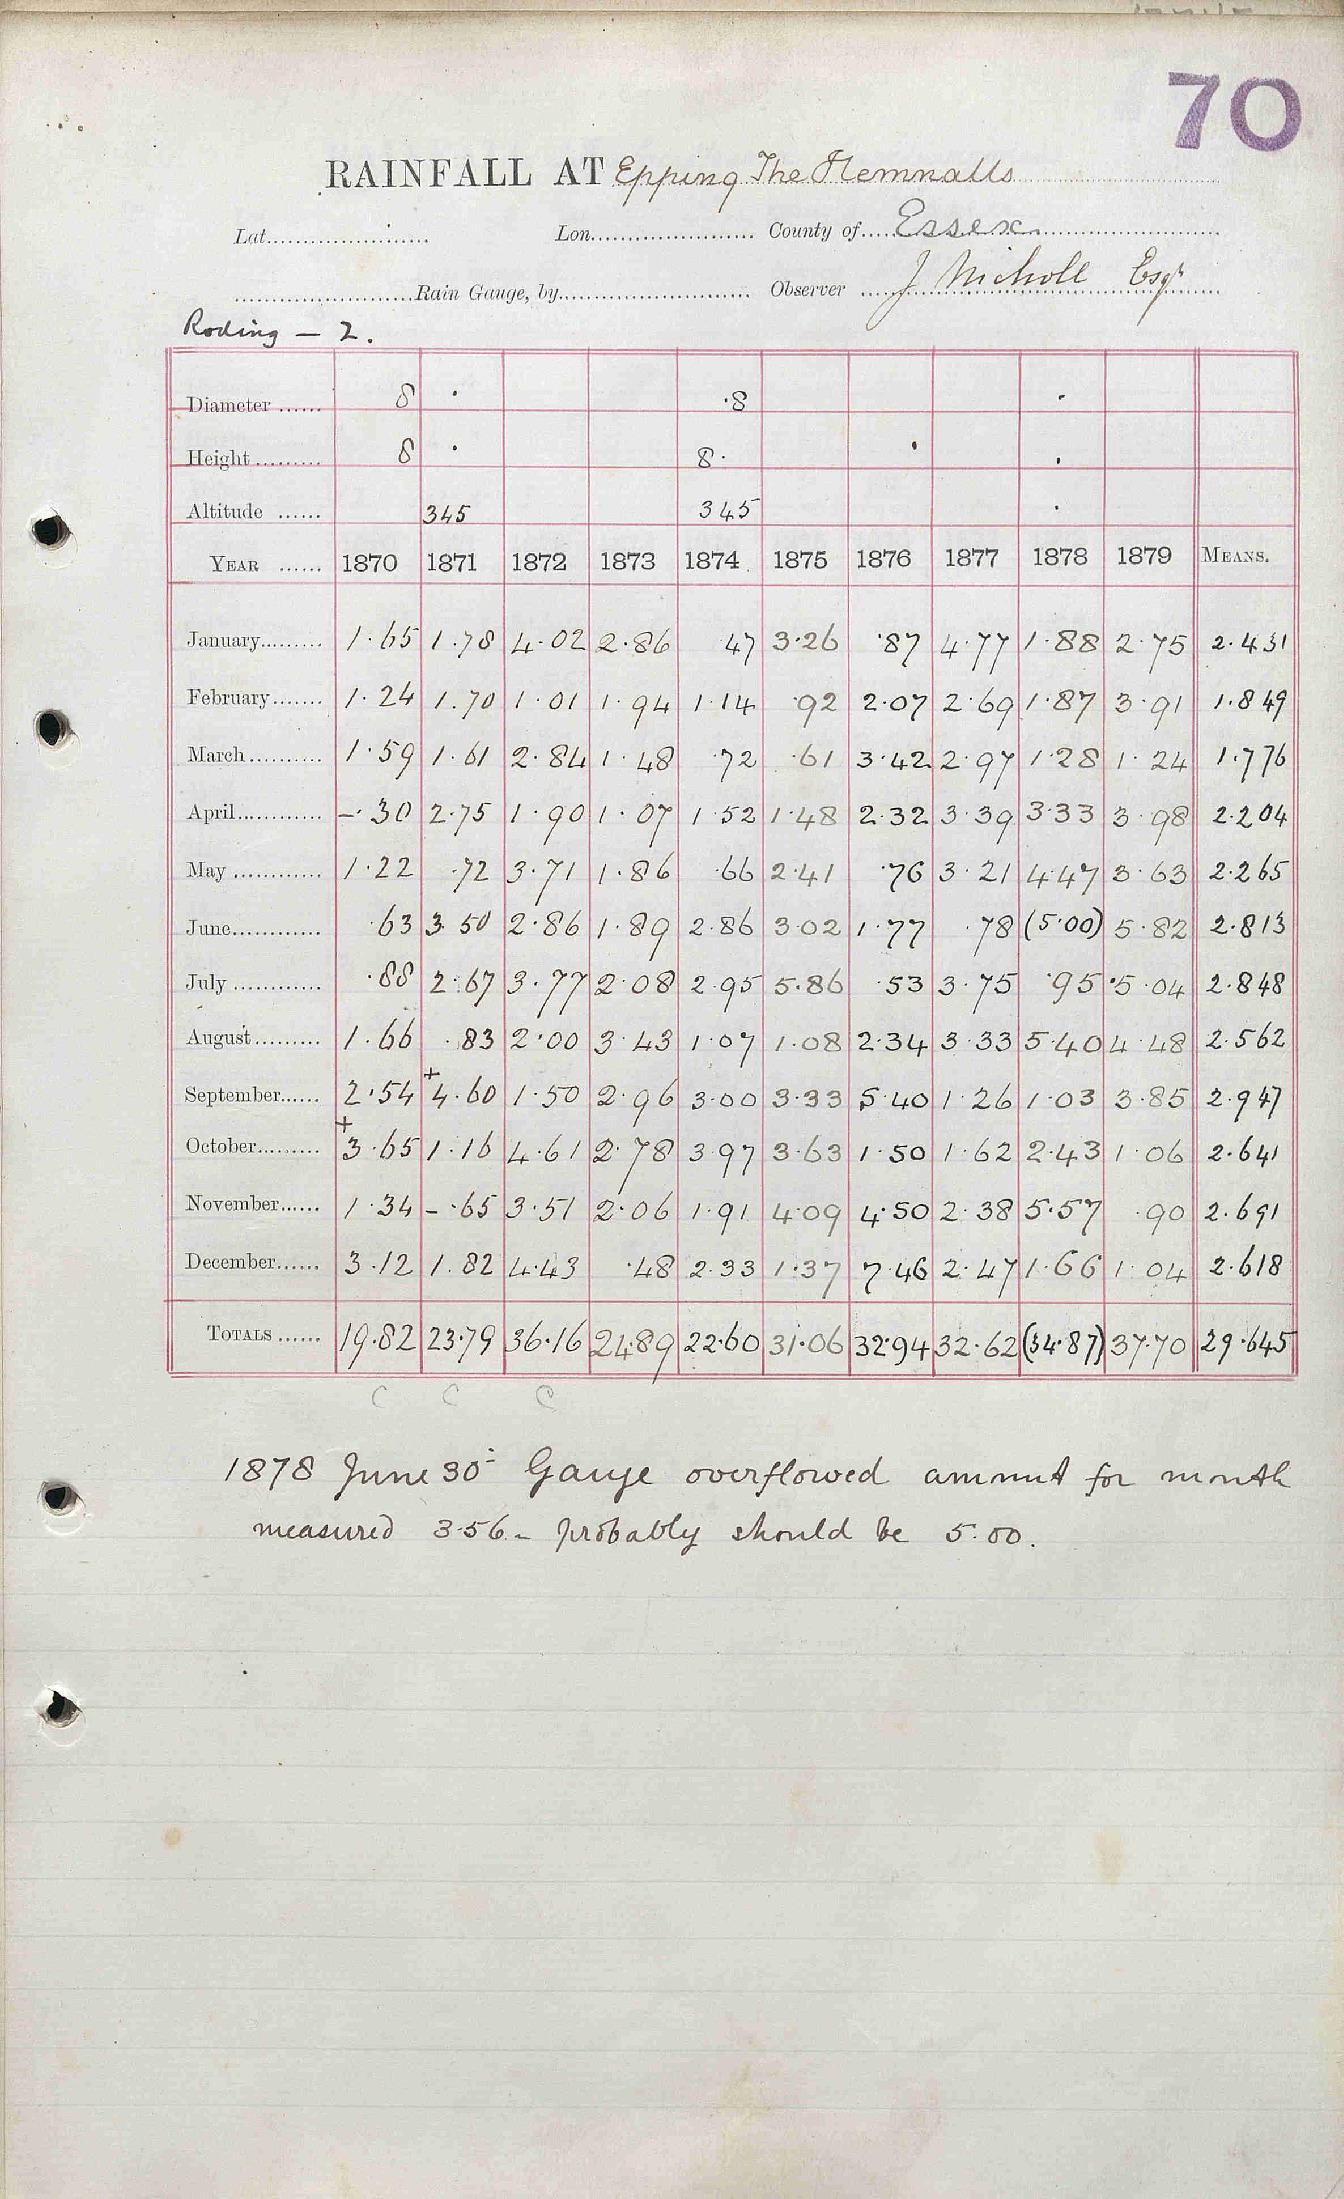 70
RAINFALL AT Epping The Hemnalls
Lat. Lon. County of Essex
Rain Gauge, by Observer J Nicholl Esqr
Roding — 2.
Diameter 8 · ·8 ·
Height 8 · 8· · ·
Altitude 345 345 ·
YEAR 1870 1871 1872 1873 1874 1875 1876 1877 1878 1879 MEANS.
January 1·65 1·78 4·02 2·86 47 3·26 ·87 4·77 1·88 2·75 2·431
February 1·24 1·70 1·01 1·94 1·14 ·92 2·07 2·69 1·87 3·91 1·849
March 1·59 1·61 2·84 1·48 ·72 ·61 3·42 2·97 1·28 1·24 1·776
April –·30 2·75 1·90 1·07 1·52 1·48 2·32 3·39 3·33 3·98 2·204
May 1·22 ·72 3·71 1·86 ·66 2·41 ·76 3·21 4·47 3·63 2·265
June ·63 3·50 2·86 1·89 2·86 3·02 1·77 ·78 (5·00) 5·82 2·813
July ·88 2·67 3·77 2·08 2·95 5·86 ·53 3·75 ·95 5·04 2·848
August 1·66 ·83 2·00 3·43 1·07 1·08 2·34 3·33 5·40 4·48 2·562
September 2·54 +4·60 1·50 2·96 3·00 3·33 5·40 1·26 1·03 3·85 2·947
October +3·65 1·16 4·61 2·78 3·97 3·63 1·50 1·62 2·43 1·06 2·641
November 1·34 –·65 3·51 2·06 1·91 4·09 4·50 2·38 5·57 ·90 2·691
December 3·12 1·82 4·43 ·48 2·33 1·37 7·46 2·47 1·66 1·04 2·618
TOTALS 19·82 23·79 36·16 24·89 22·60 31·06 32·94 32·62 (34·87) 37·70 29·645
C C C
1878 June 30 Gauge overflowed amount for month
measured 3·56 – probably should be 5·00.